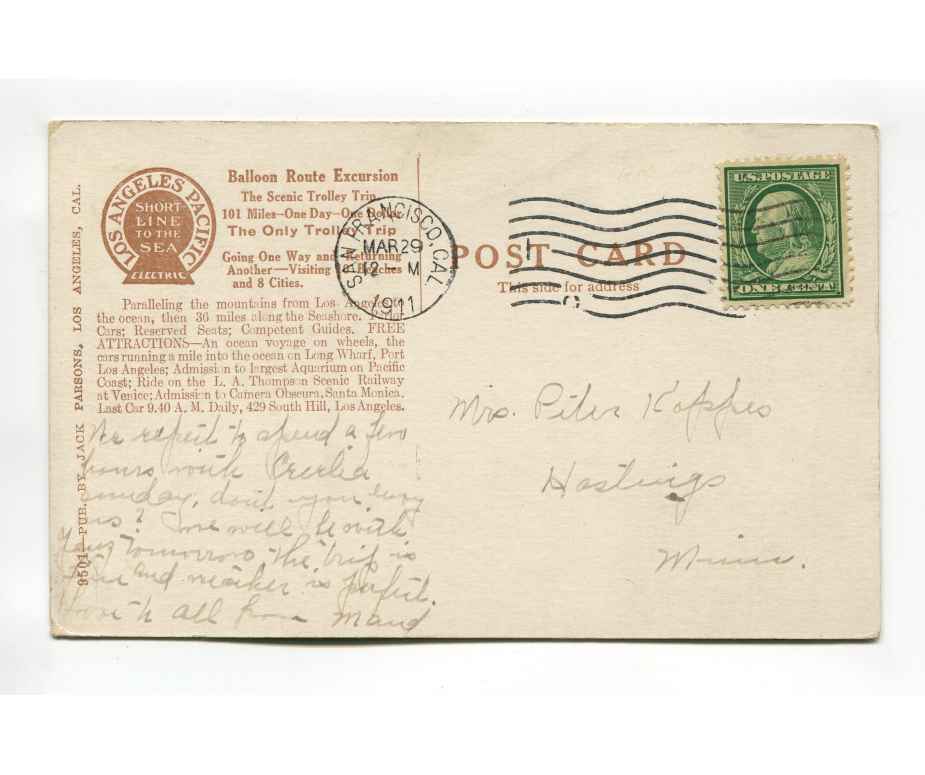 9501—PUB. BY JACK PARSONS, LOS ANGELES, CAL.
LOS ANGELES PACIFIC
SHORT
LINE
TO THE
SEA
ELECTRIC
Balloon Route Excursion
The Scenic Trolley Trip
101 Miles—One Day—One Dollar
The Only Trolley Trip
Going One Way and Returning
Another—Visiting Beaches
and 8 Cities.
Paralleling the mountains from Los Angeles to
the ocean, then 36 miles along the Seashore.
Cars; Reserved Seats; Competent Guides. FREE
ATTRACTIONS—An ocean voyage on wheels, the
cars running a mile into the ocean on Long Wharf, Port
Los Angeles; Admission to largest Aquarium on Pacific
Coast; Ride on the L. A. Thompson Scenic Railway
at Venice; Admission to Camera Obscura, Santa Monica.
Last Car 9.40 A. M. Daily, 429 South Hill, Los Angeles.
We expect to spend a few
hours with Cecelia
sunday, don't you envy
us? will be with
tomorrow the trip is
fine and weather is perfect.
Love to all from Maud
SAN FRANCISCO, CAL.
MAR 29
12 M
1911
POST CARD
This side for address
U.S. POSTAGE
ONE CENT
Mrs. Peter Koppes
Hastings
Minn.